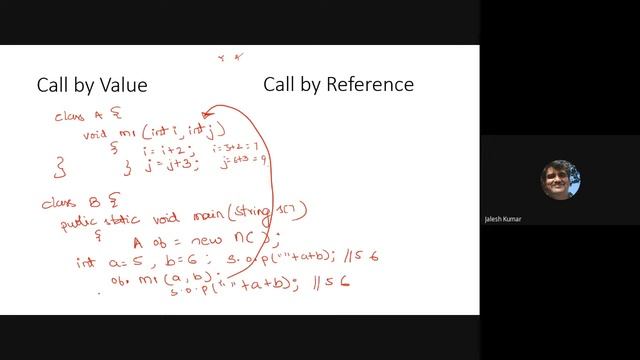 Call by Value
Call by Reference
class A {
void m1 (int i, int j)
{ i = i+2; i=3+2=7
} } j = j+3; j=6+3=9
class B {
public static void main (String s[])
{ A ob = new A( );
int a=5 , b=6 ; s.o.p(" "+a+b); //5 6
ob. m1 (a, b);
s.o.p(" "+a+b); //5 6
Jalesh Kumar